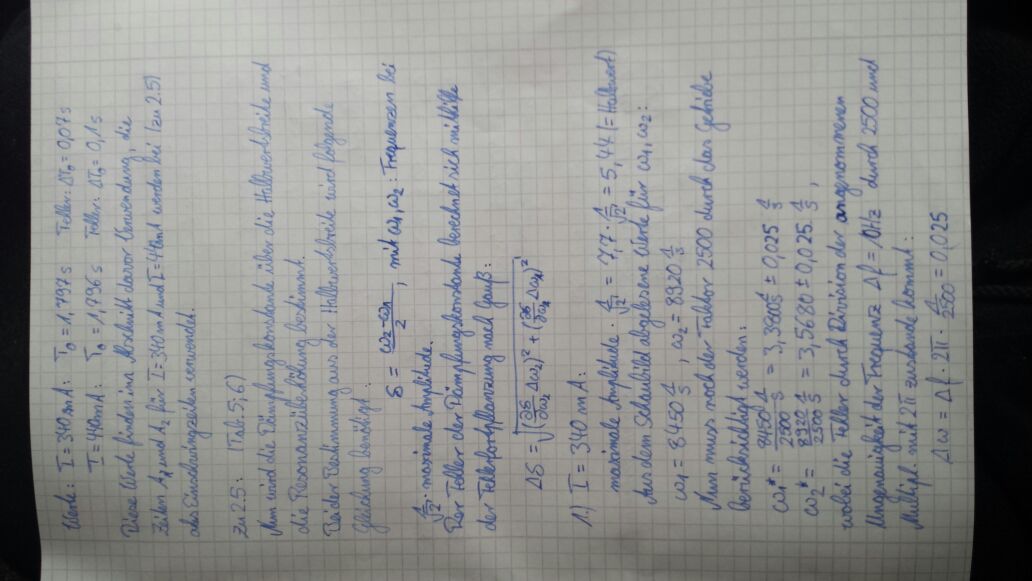 Werte: I = 340mA: T₀ = 1,797 s Fehler: ΔT₀ = 0,07 s
I = 440mA: T₀ = 1,796 s Fehler: ΔT₀ = 0,1 s
Diese Werte finden im Abschnitt davor Verwendung, die
Zeiten und für I = 340mA und I = 440mA werden bei (zu 2.5)
als Einschwingzeiten verwendet.
zu 2.5: (Tab. 5; 6)
Nun wird die Dämpfungskonstante über die Halbwertsbreite und
die Resonanzüberhöhung bestimmt.
Bei der Bestimmung aus der Halbwertsbreite wird folgende
Gleichung benötigt:
δ = (ω₂-ω₁)/2, mit ω₁, ω₂: Frequenzen bei
1/√2 · maximale Amplitude.
Der Fehler der Dämpfungskonstante berechnet sich mithilfe
der Fehlerfortpflanzung nach Gauß:
Δδ = √((∂δ/∂ω₂ Δω₂)² + (∂δ/∂ω₁ Δω₁)²)
1.) I = 340 mA:
maximale Amplitude · 1/√2 = 7,7 · 1/√2 = 5,44 (= Halbwert)
Aus dem Schaubild abgelesene Werte für ω₁, ω₂:
ω₁ = 8450 1/s, ω₂ = 8920 1/s
Nun muss noch der Faktor 2500 durch das Getriebe
berücksichtigt werden:
ω₁* = 8450/2500 1/s = ± 0,025 1/s
ω₂* = 8920/2500 1/s = 3,5680 ± 0,025 1/s,
wobei die Fehler durch Division der angenommenen
Ungenauigkeit der Frequenz Δf = 10Hz durch 2500 und
Multipl. mit 2π zustande kommt:
Δω = Δf · 2π · 1/2500 = 0,025